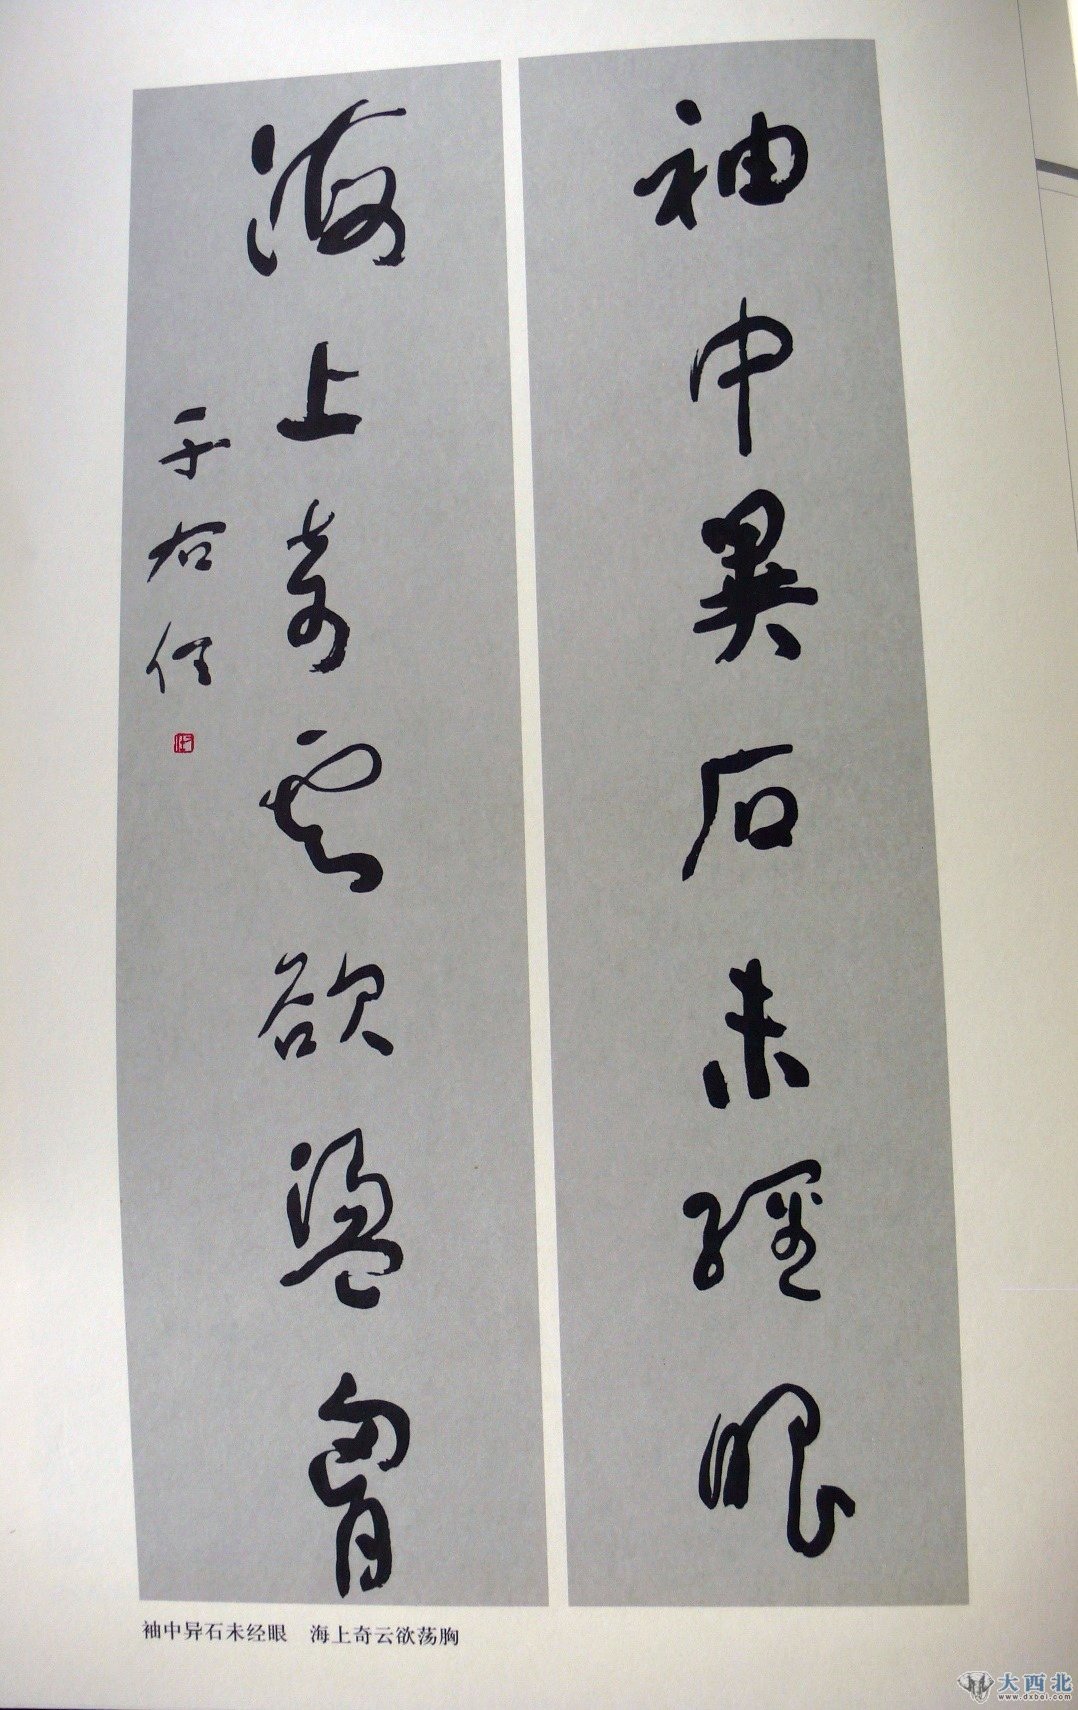 袖中異石未經眼
海上奇雲欲盪胷
于右任
袖中异石未经眼　海上奇云欲荡胸
大西北
www.dxbei.com